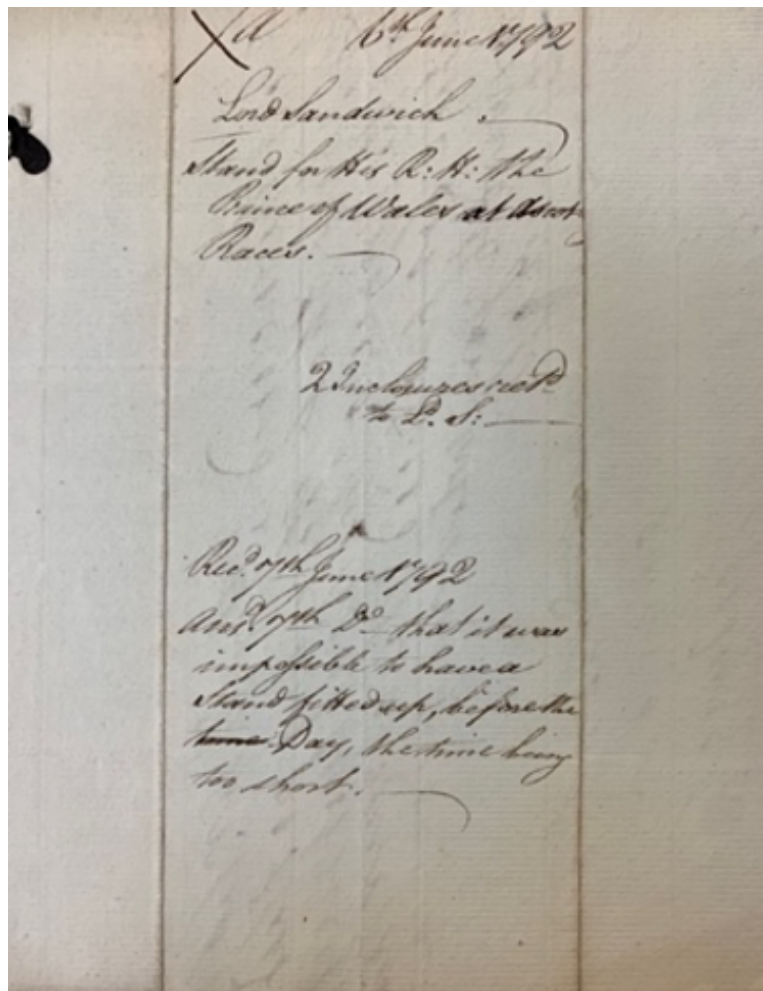 6th June 1792
Lord Sandwich.
Stand for His R: H: the
Prince of Wales at Ascot
Races.
2 Inclosures retd
to Ld. S:
Recd. 7th June 1792
Ansd. 7th Do. that it was
impossible to have a
Stand fitted up, before the
time. Day, the time being
too short.